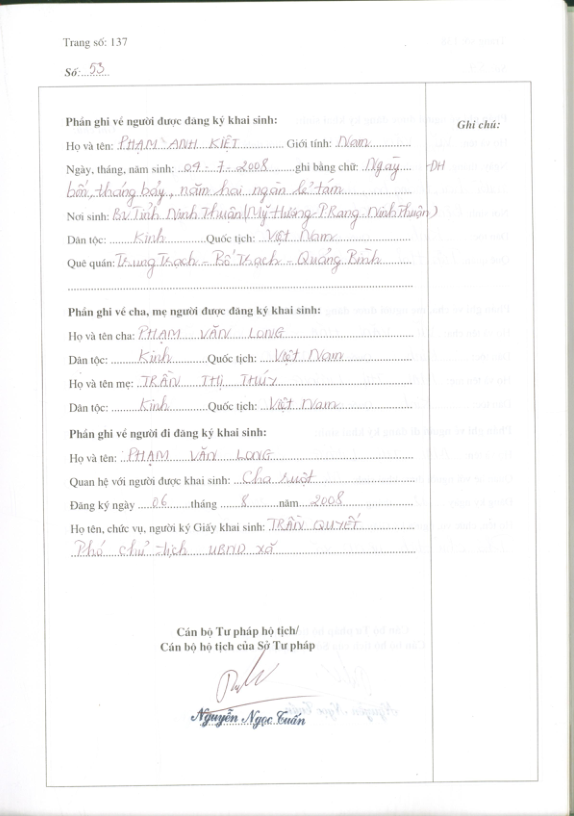 Trang số: 137
Số: 53
Phần ghi về người được đăng ký khai sinh:
Ghi chú:
Họ và tên: PHẠM ANH KIỆT Giới tính: Nam
Ngày, tháng, năm sinh: 04 - 7 - 2008 ghi bằng chữ: Ngày
bốn, tháng bảy, năm hai ngàn lẻ tám
Nơi sinh: BV Tỉnh Ninh Thuận (Mỹ Hương - P.Rang Ninh Thuận)
Dân tộc: Kinh Quốc tịch: Việt Nam
Quê quán: Trung Trạch - Bố Trạch - Quảng Bình
Phần ghi về cha, mẹ người được đăng ký khai sinh:
Họ và tên cha: PHẠM VĂN LONG
Dân tộc: Kinh Quốc tịch: Việt Nam
Họ và tên mẹ: TRẦN THỊ THÚY
Dân tộc: Kinh Quốc tịch: Việt Nam
Phần ghi về người đi đăng ký khai sinh:
Họ và tên: PHẠM VĂN LONG
Quan hệ với người được khai sinh: Cha ruột
Đăng ký ngày 06 tháng 8 năm 2008
Họ tên, chức vụ, người ký Giấy khai sinh: TRẦN QUYẾT
Phó chủ tịch UBND xã
Cán bộ Tư pháp hộ tịch/
Cán bộ hộ tịch của Sở Tư pháp
Nguyễn Ngọc Tuấn